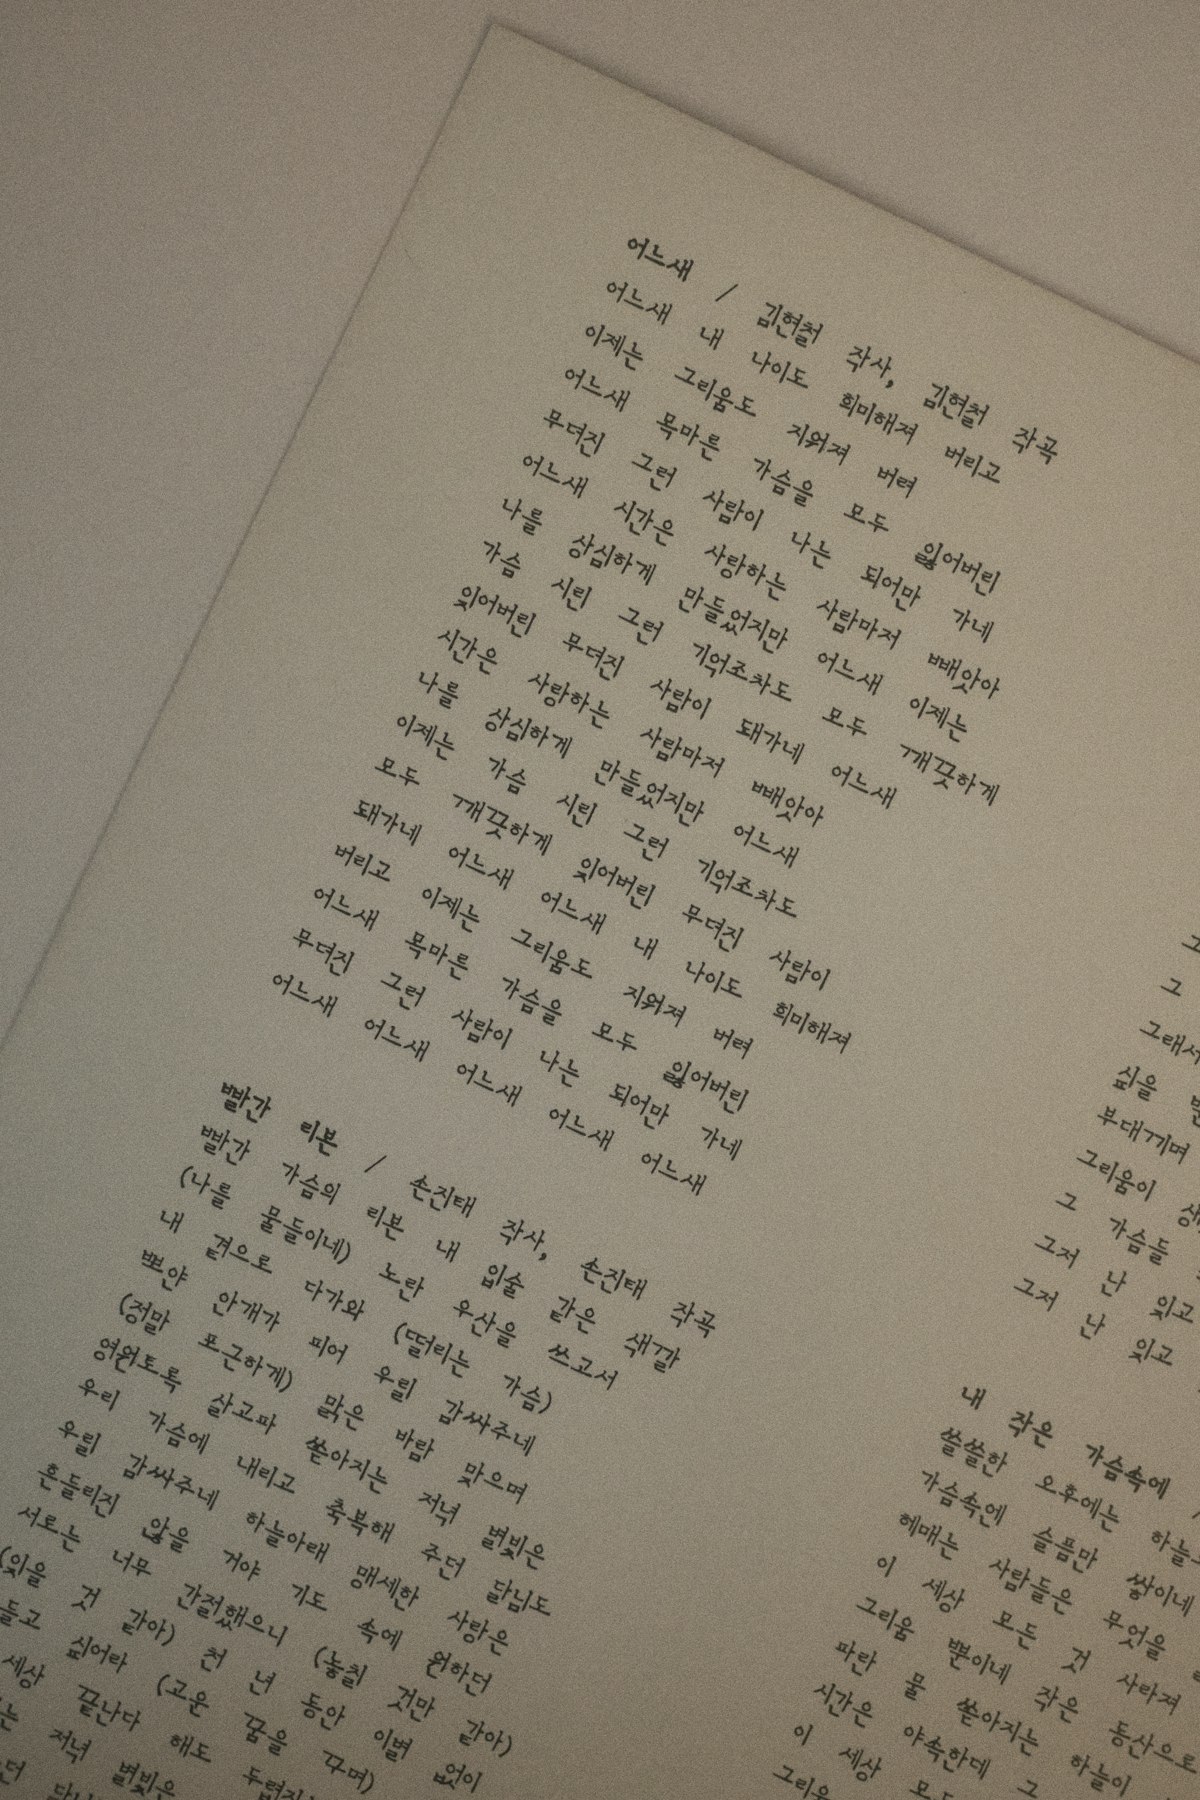 어느새 / 김현철 작사, 김현철 작곡
어느새 내 나이도 희미해져 버리고
이제는 그리움도 지워져 버려
어느새 목마른 가슴을 모두 잃어버린
무뎌진 그런 사람이 나는 되어만 가네
어느새 시간은 사랑하는 사람마저 빼앗아
나를 상심하게 만들었지만 어느새 이제는
가슴 시린 그런 기억조차도 모두 깨끗하게
잊어버린 무뎌진 사람이 돼가네 어느새
시간은 사랑하는 사람마저 빼앗아
나를 상심하게 만들었지만 어느새
이제는 가슴 시린 그런 기억조차도
모두 깨끗하게 잊어버린 무뎌진 사람이
돼가네 어느새 어느새 내 나이도 희미해져
버리고 이제는 그리움도 지워져 버려
어느새 목마른 가슴을 모두 잃어버린
무뎌진 그런 사람이 나는 되어만 가네
어느새 어느새 어느새 어느새 어느새
빨간 리본 / 손진태 작사, 손진태 작곡
빨간 가슴의 리본 내 입술 같은 색깔
(나를 물들이네) 노란 우산을 쓰고서
내 곁으로 다가와 (떨리는 가슴)
뽀얀 안개가 피어 우릴 감싸주네
(정말 포근하게) 맑은 바람 맞으며
영원토록 살고파 쏟아지는 저녁 별빛은
우리 가슴에 내리고 축복해 주던 달님도
우릴 감싸주네 하늘아래 맹세한 사랑은
흔들리진 않을 거야 기도 속에 원하던
서로는 너무 간절했으니 (놓칠 것만 같아)
(있을 것 같아) 천 년 동안 이별 없이
들고 싶어라 (고운 꿈을 꾸며)
세상 끝난다 해도
저녁 별빛은
그
그래서
싶을
부대끼며
그리움이
그 가슴들
그저 난 잊고
그저 난 잊고
내 작은 가슴속에 /
쓸쓸한 오후에는
가슴속에 슬픔만 쌓이네
헤매는 사람들은 무엇을
이 세상 모든 것 사라져
그리움 뿐이네 작은 동산으로
파란 물 쏟아지는 하늘이
시간은 야속한데 그
이 세상